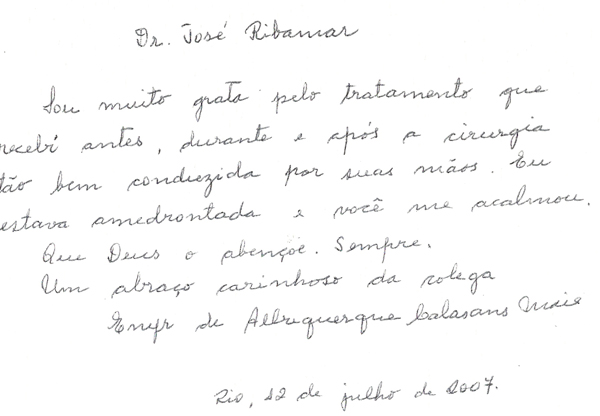 Dr. José Ribamar
Sou muito grata pelo tratamento que
recebi antes, durante e após a cirurgia
tão bem conduzida por suas mãos. Eu
estava amedrontada e você me acalmou.
Que Deus o abençoe. Sempre.
Um abraço carinhoso da colega
de Albuquerque Calasans Maia
Rio, 12 de julho de 2007.